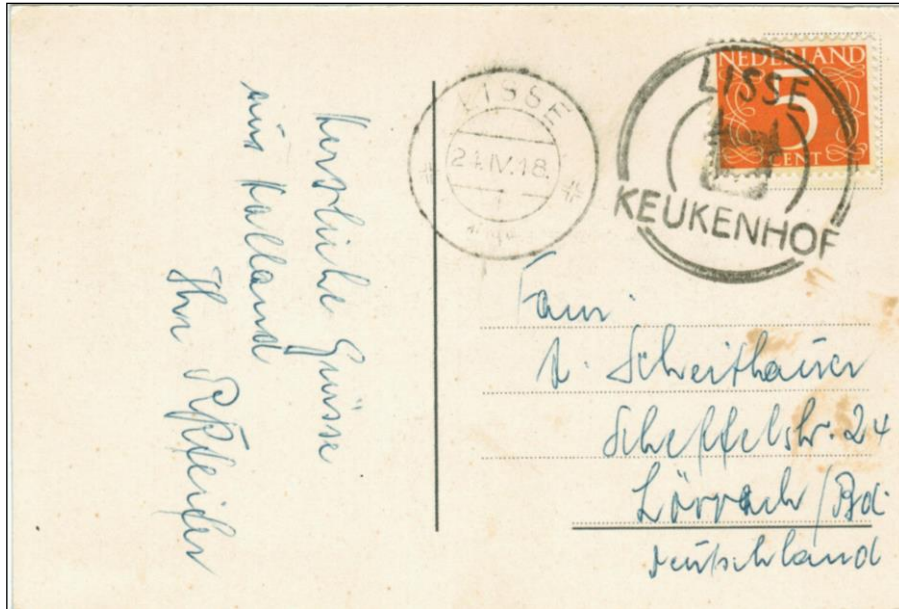 Herzliche Grüsse
aus Holland
Ihr
LISSE
24.IV.18.
NEDERLAND
5
CENT
LISSE
KEUKENHOF
Fam.
Scheithauer
Scheffelstr. 24
Lörrach/Bd.
Deutschland